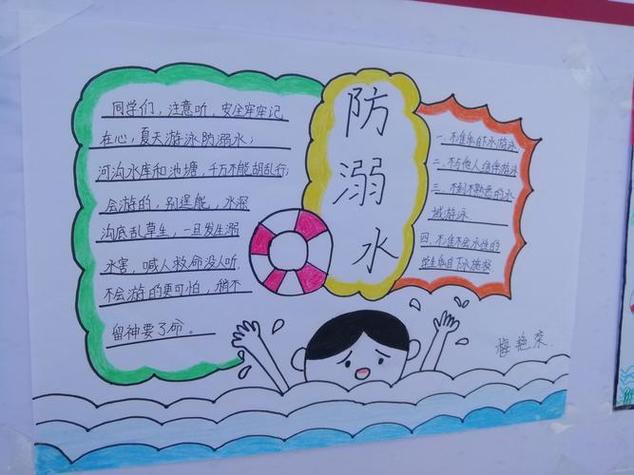 同学们，注意听，安全牢牢记
在心，夏天游泳防溺水；
河沟水库和池塘，千万不能胡乱行；
会游的，别逞能，水深
沟底乱草生，一旦发生溺
水害，喊人救命没人听，
不会游的更可怕，稍不
留神要了命。
防
溺
水
一、不准私自下水游泳
二、不与他人结伴游泳
三、不到不熟悉的水
域游泳
四、不准不会水性的
学生私自下水施救
梅艳